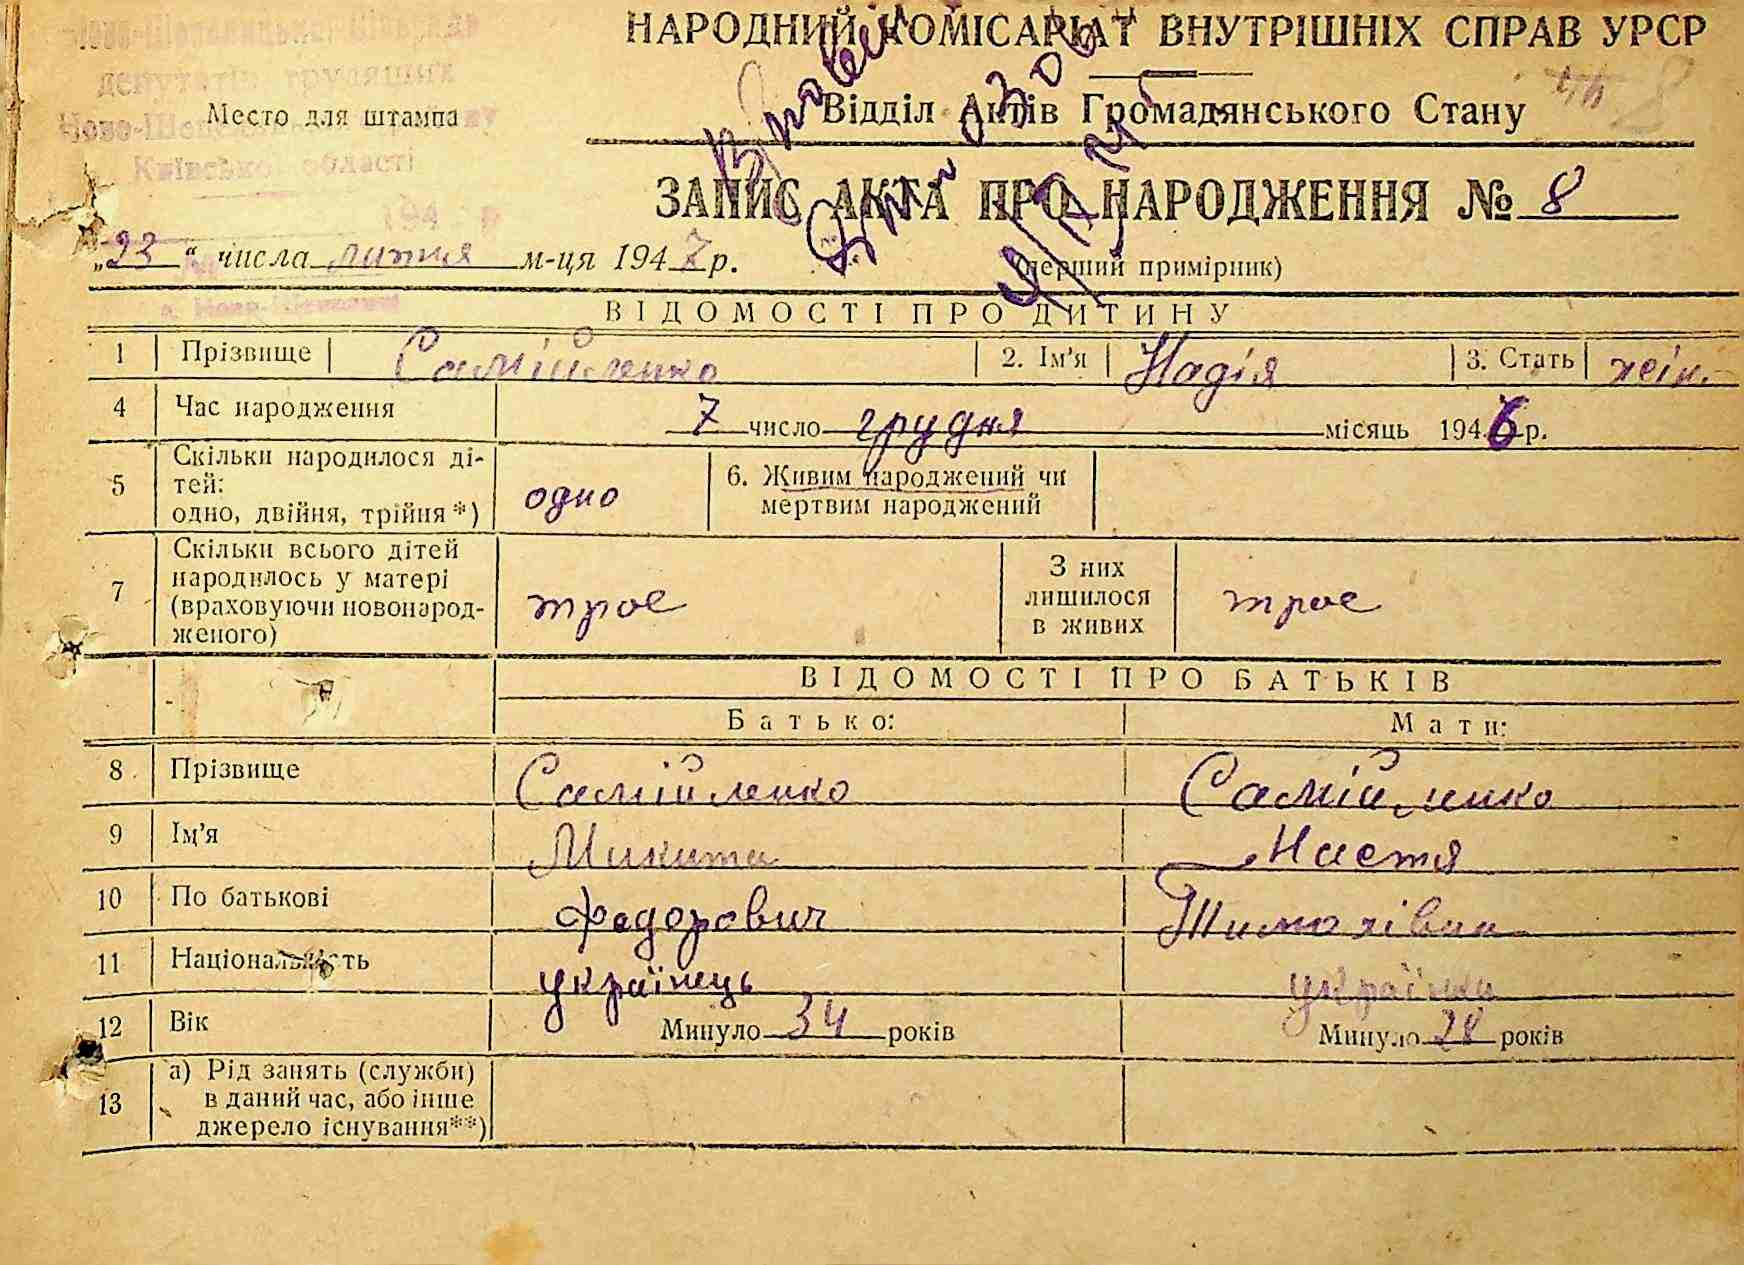 НАРОДНИЙ КОМІСАРІАТ ВНУТРІШНІХ СПРАВ УРСР
депутатів трудящих
Місто для штампа
Відділ Актів Громадянського Стану
Київської області
ЗАПИС АКТА ПРО НАРОДЖЕННЯ № 8
194 р
„23“ числа лютня м-ця 1947 р.
(перший примірник)
ВІДОМОСТІ ПРО ДИТИНУ
1 Прізвище Самійленко 2. Ім'я Надія 3. Стать жін.
4 Час народження 7 число грудня місяць 1946 р.
5 Скільки народилося ді-
тей:
одно, двійня, трійня *) одно 6. Живим народжений чи
мертвим народжений
7 Скільки всього дітей
народилось у матері
(враховуючи новонарод-
женого) троє З них
лишилося
в живих троє
ВІДОМОСТІ ПРО БАТЬКІВ
Батько: Мати:
8 Прізвище Самійленко Самійленко
9 Ім'я Микита Настя
10 По батькові Федорович Тимохівна
11 Національність українець українка
12 Вік Минуло 34 років Минуло 28 років
13 а) Рід занять (служби)
в даний час, або інше
джерело існування**)